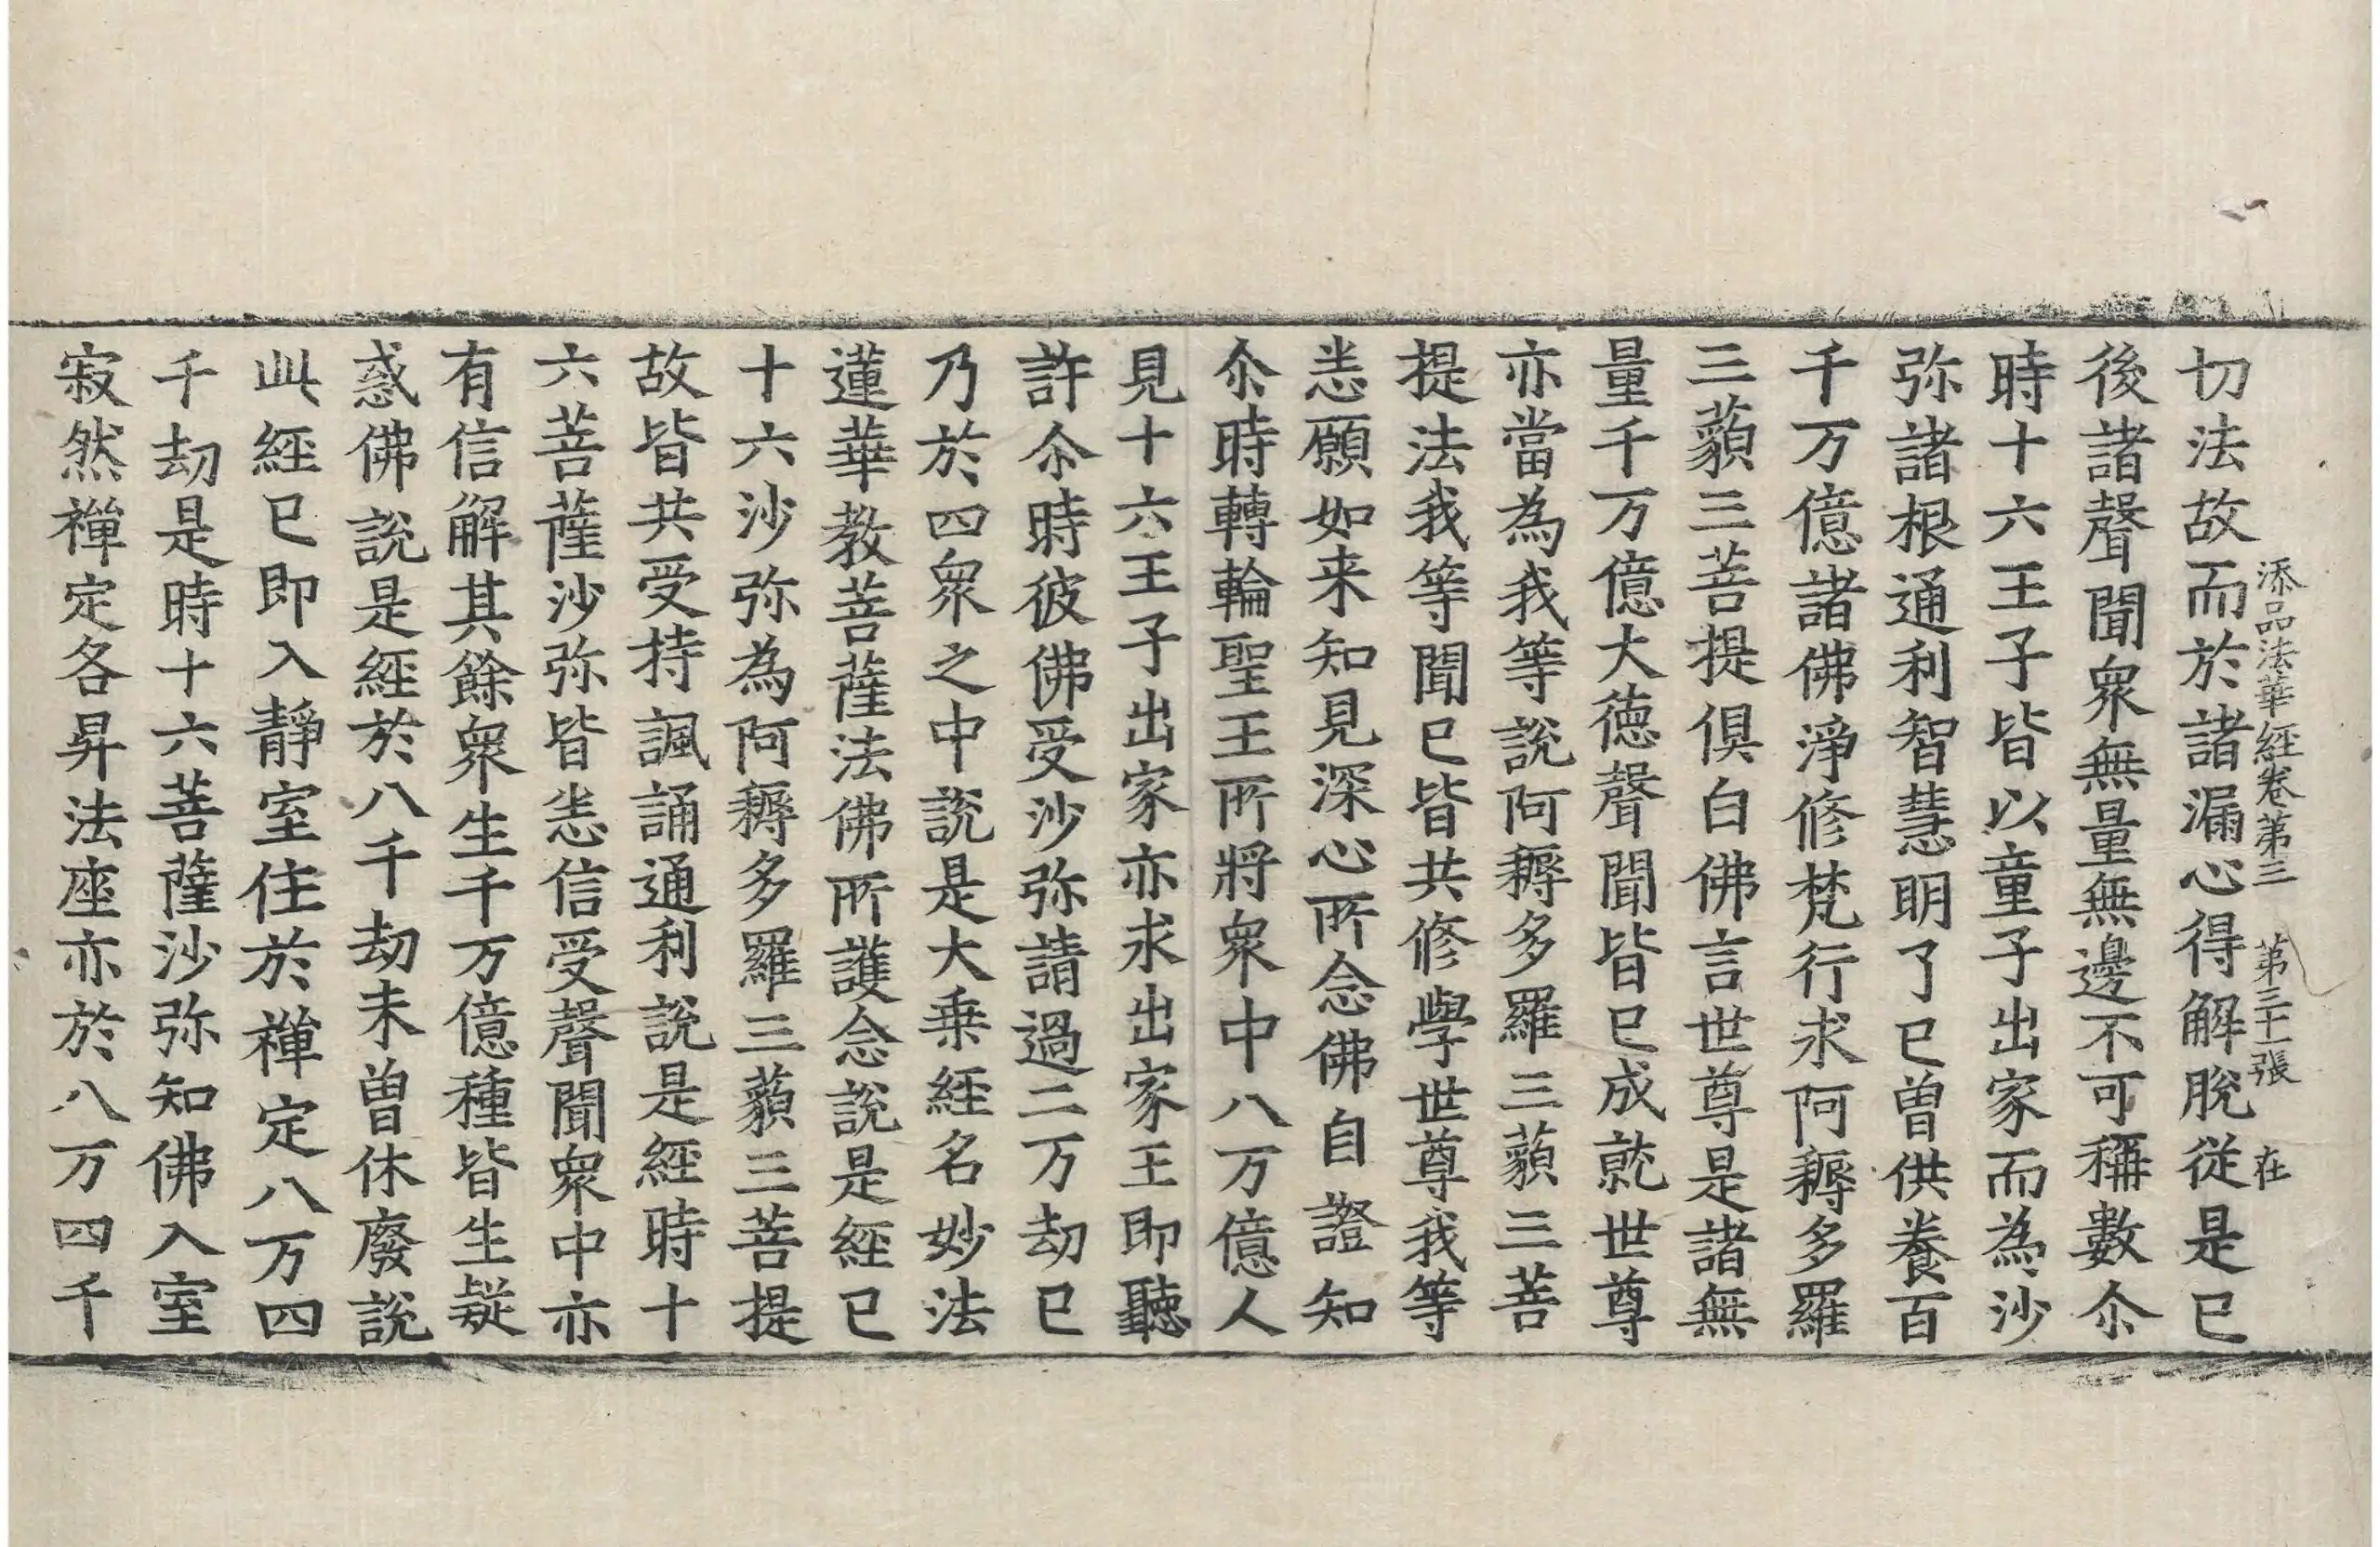 添品法華經卷第三　第三十二張　在
切法故而於諸漏心得解脫從是已
後諸聲聞衆無量無邊不可稱數尒
時十六王子皆以童子出家而為沙
弥諸根通利智慧明了已曾供養百
千万億諸佛淨修梵行求阿耨多羅
三藐三菩提俱白佛言世尊是諸無
量千万億大德聲聞皆已成就世尊
亦當為我等說阿耨多羅三藐三菩
提法我等聞已皆共修學世尊我等
恙願如来知見深心所念佛自證知
尒時轉輪聖王所將衆中八万億人
見十六王子出家亦求出家王即聽
許尒時彼佛受沙弥請過二万劫已
乃於四衆之中說是大乗經名妙法
蓮華教菩薩法佛所護念說是經已
十六沙弥為阿耨多羅三藐三菩提
故皆共受持諷誦通利說是經時十
六菩薩沙弥皆恙信受聲聞衆中亦
有信解其餘衆生千万億種皆生疑
惑佛說是經於八千劫未曾休廢說
此經已即入靜室住於禪定八万四
千劫是時十六菩薩沙弥知佛入室
寂然禪定各昇法座亦於八万四千